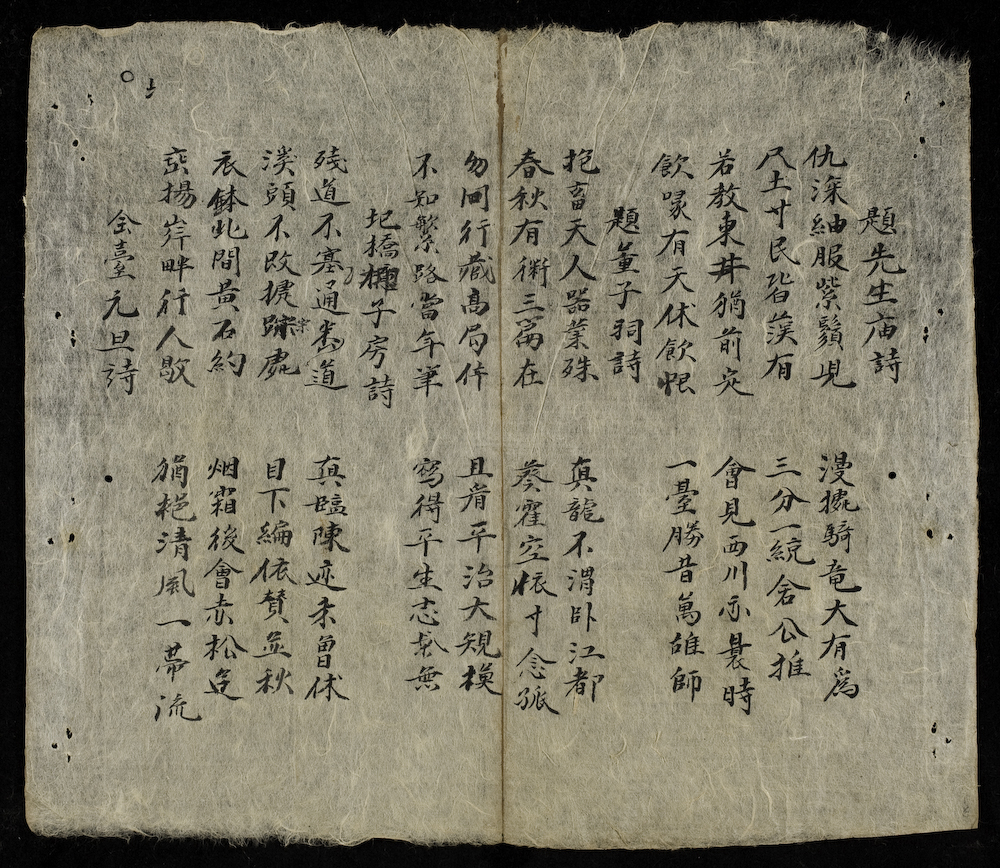 題先生庙詩
仇深紬服紫鬚児 漫攄騎竜大有為
尺土寸民皆漢有 三分一統舍公推
若教東井猶前灾 會見西川亦曩時
飲喙有天休飲恨 一臺勝昔萬雄師
題董子祠詩
抱畜天人器業殊 真龍不渭卧江都
春秋有術三為在 葵霍空悵寸念孤
勿回行藏高局作 且看平治大規模
不知繁路當年筆 寫得平生志業無
圯橋子房詩
残道不塞通道 真臨陳迹未曾休
漢頭不改摭踪處 目下編依賛並秋
衣鉢此間黃石約 烟霜後會赤松逰
揚岸畔行人歇 猶挹清風一帶流
全臺元旦詩